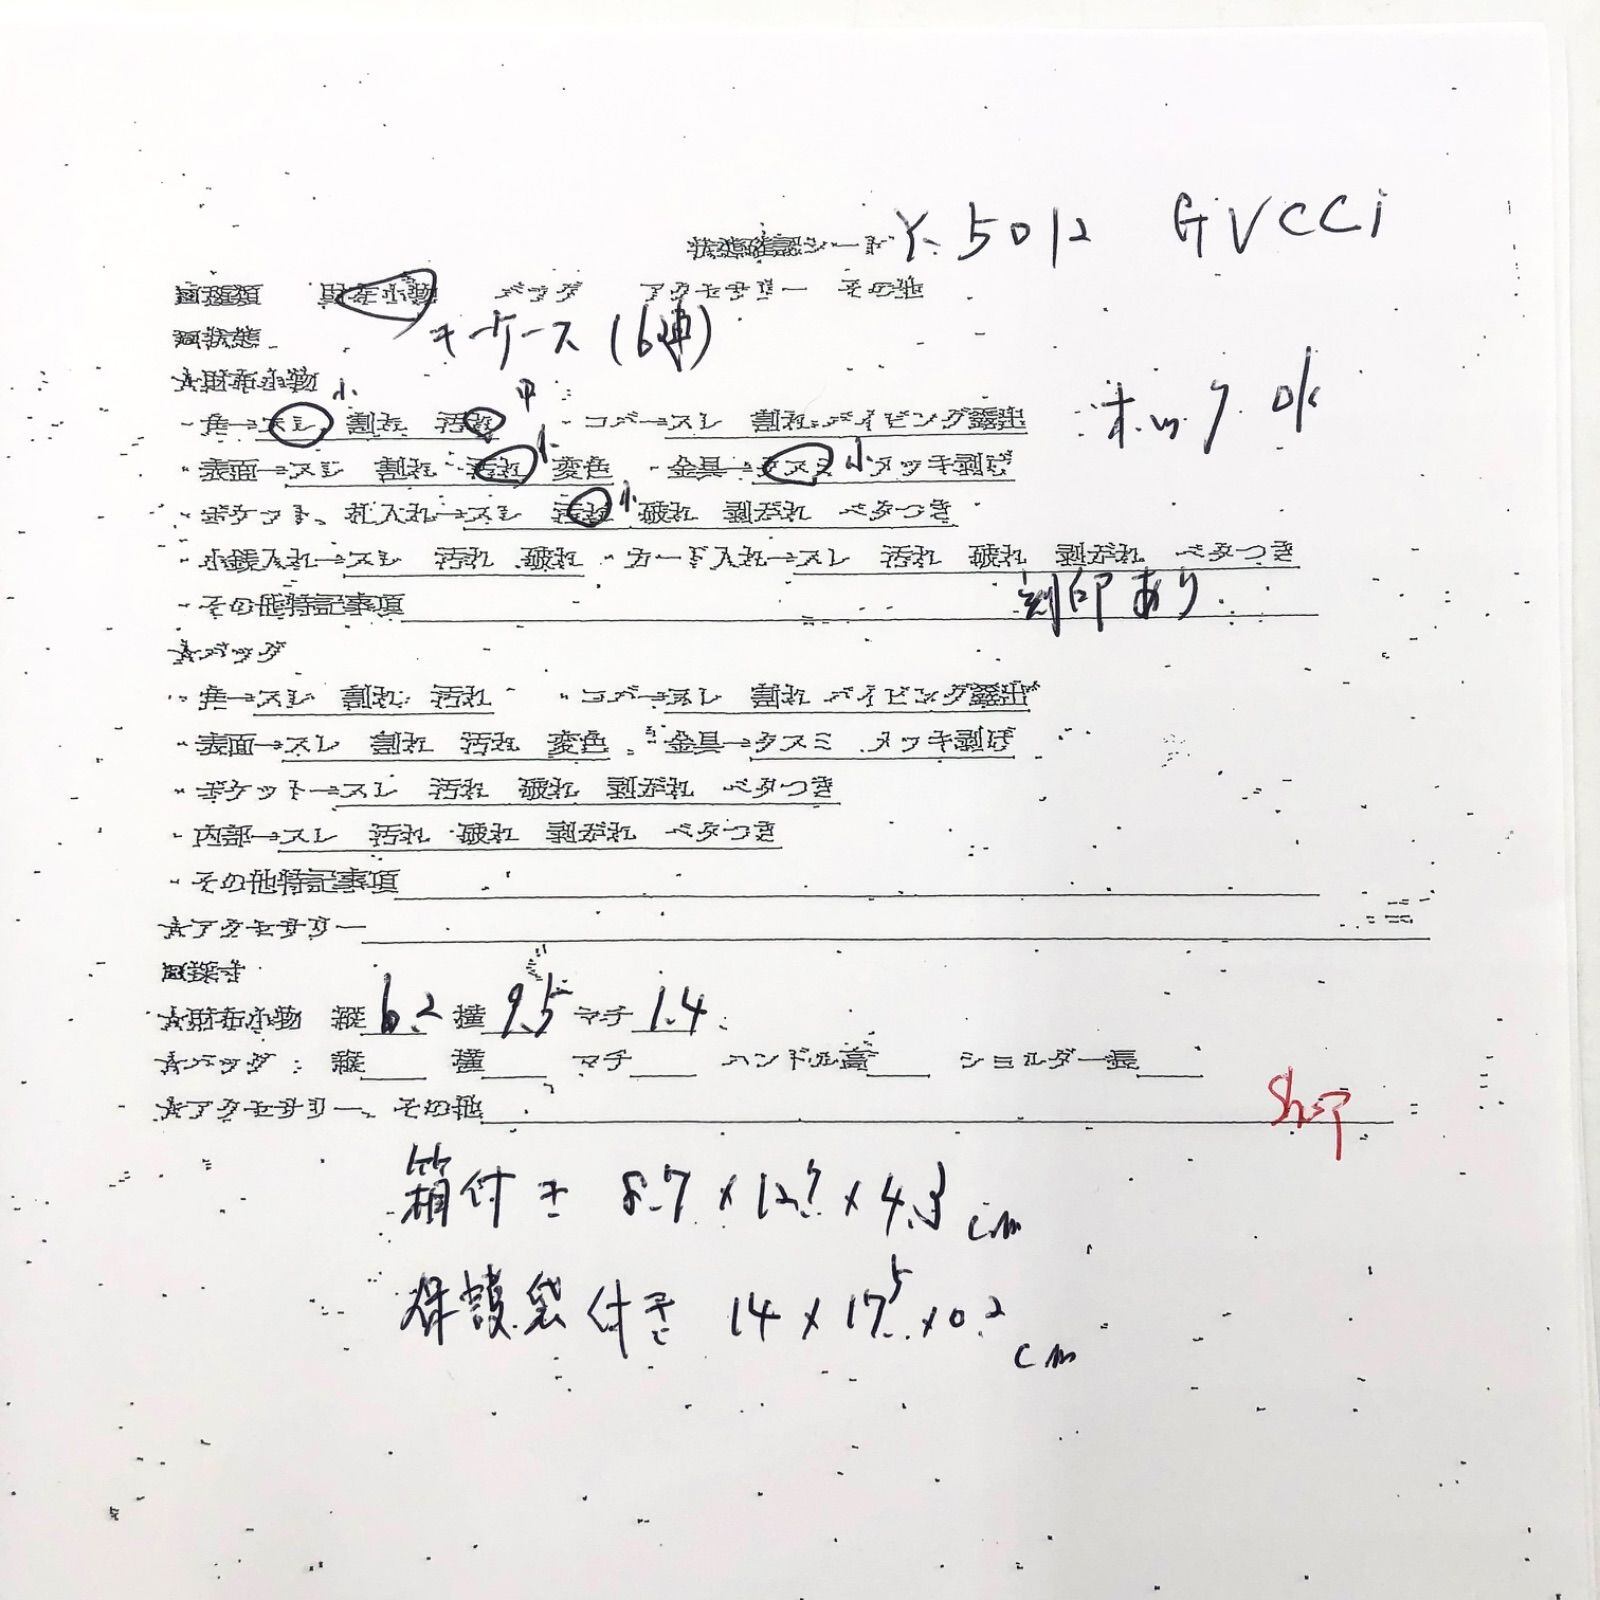 状態確認シート Y-5012 GUCCI
■種類 財布小物 バッグ アクセサリー その他
■状態 キーケース (6連)
☆財布小物 小 中
・角→スレ 割れ 汚れ ・コバ→スレ 割れ パイピング露出 ホック OK
・表面→スレ 割れ 汚れ 小 変色 ・金具→クスミ 小 メッキ剥げ
・ポケット、札入れ→スレ 汚れ 小 破れ 剥がれ ベタつき
・小銭入れ→スレ 汚れ 破れ ・カード入れ→スレ 汚れ 破れ 剥がれ ベタつき
・その他特記事項 刻印あり
☆バッグ
・角→スレ 割れ 汚れ ・コバ→スレ 割れ パイピング露出
・表面→スレ 割れ 汚れ 変色 ・金具→クスミ メッキ剥げ
・ポケット→スレ 汚れ 破れ 剥がれ ベタつき
・内部→スレ 汚れ 破れ 剥がれ ベタつき
・その他特記事項
☆アクセサリー
■採寸
☆財布小物 縦 6.2 横 9.5 マチ 1.4
☆バッグ : 縦 横 マチ ハンドル高 ショルダー長
☆アクセサリー、その他
箱付き 8.7×12.7×4.3 cm
保護袋付き 14×17.5×0.2 cm